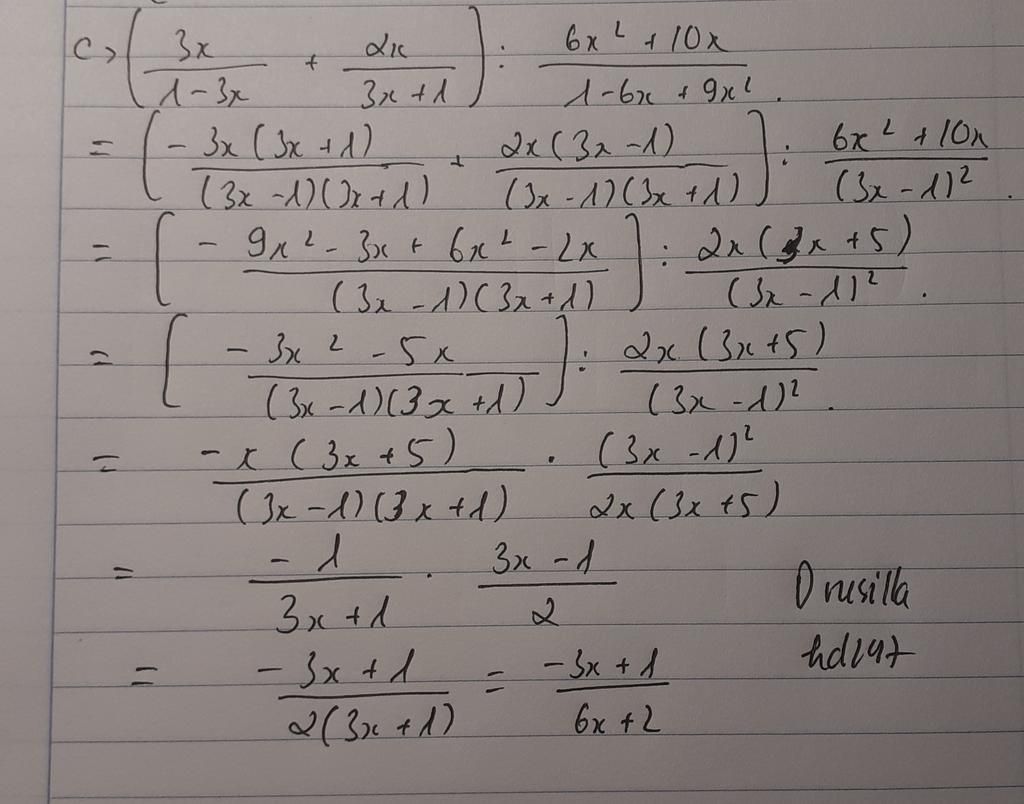 c) (3x/(1-3x) + 2x/(3x+1)) : (6x² + 10x)/(1-6x+9x²).
= [-3x(3x+1)/((3x-1)(3x+1)) + 2x(3x-1)/((3x-1)(3x+1))] : (6x² + 10x)/(3x-1)².
= [(-9x² - 3x + 6x² - 2x)/((3x-1)(3x+1))] : 2x(3x+5)/(3x-1)².
= [(-3x² - 5x)/((3x-1)(3x+1))] : 2x(3x+5)/(3x-1)².
= -x(3x+5)/((3x-1)(3x+1)) . (3x-1)²/(2x(3x+5))
= -1/(3x+1) . (3x-1)/2
= (-3x+1)/(2(3x+1)) = (-3x+1)/(6x+2)
Drusilla